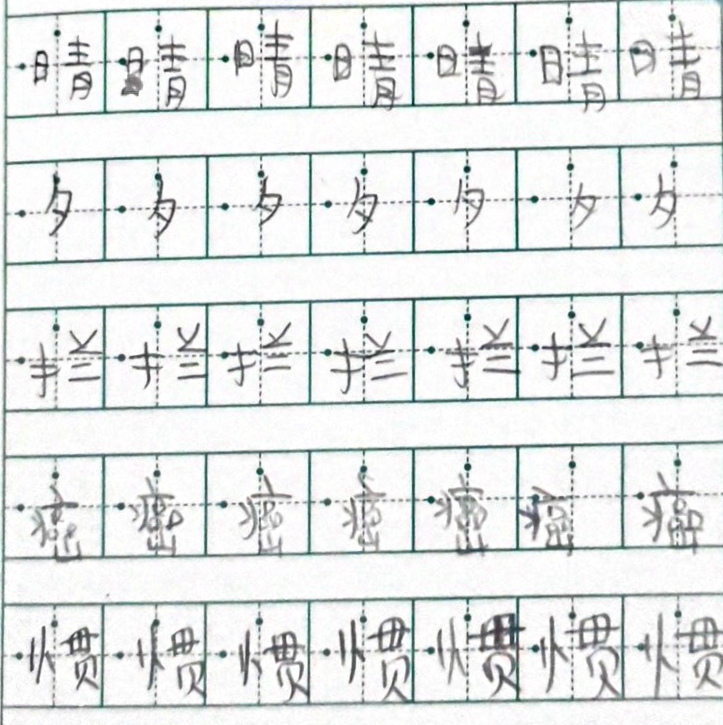 晴晴晴晴晴晴晴
夕夕夕夕夕夕夕
拦拦拦拦拦拦拦
癌癌癌癌癌癌癌
惯惯惯惯惯惯惯